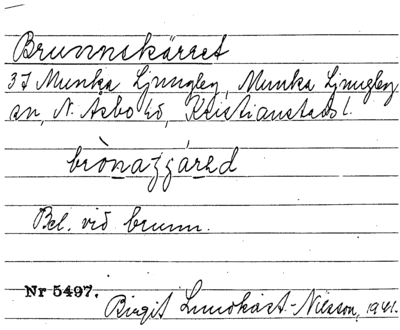 Brunnskärret
37 Munka Ljungby, Munka Ljungby
sn, N. Åsbo hd, Kristianstads l.
Bel. vid brunn.
Nr 5497.
Birgit Lundkvist-Nilsson, 1941.